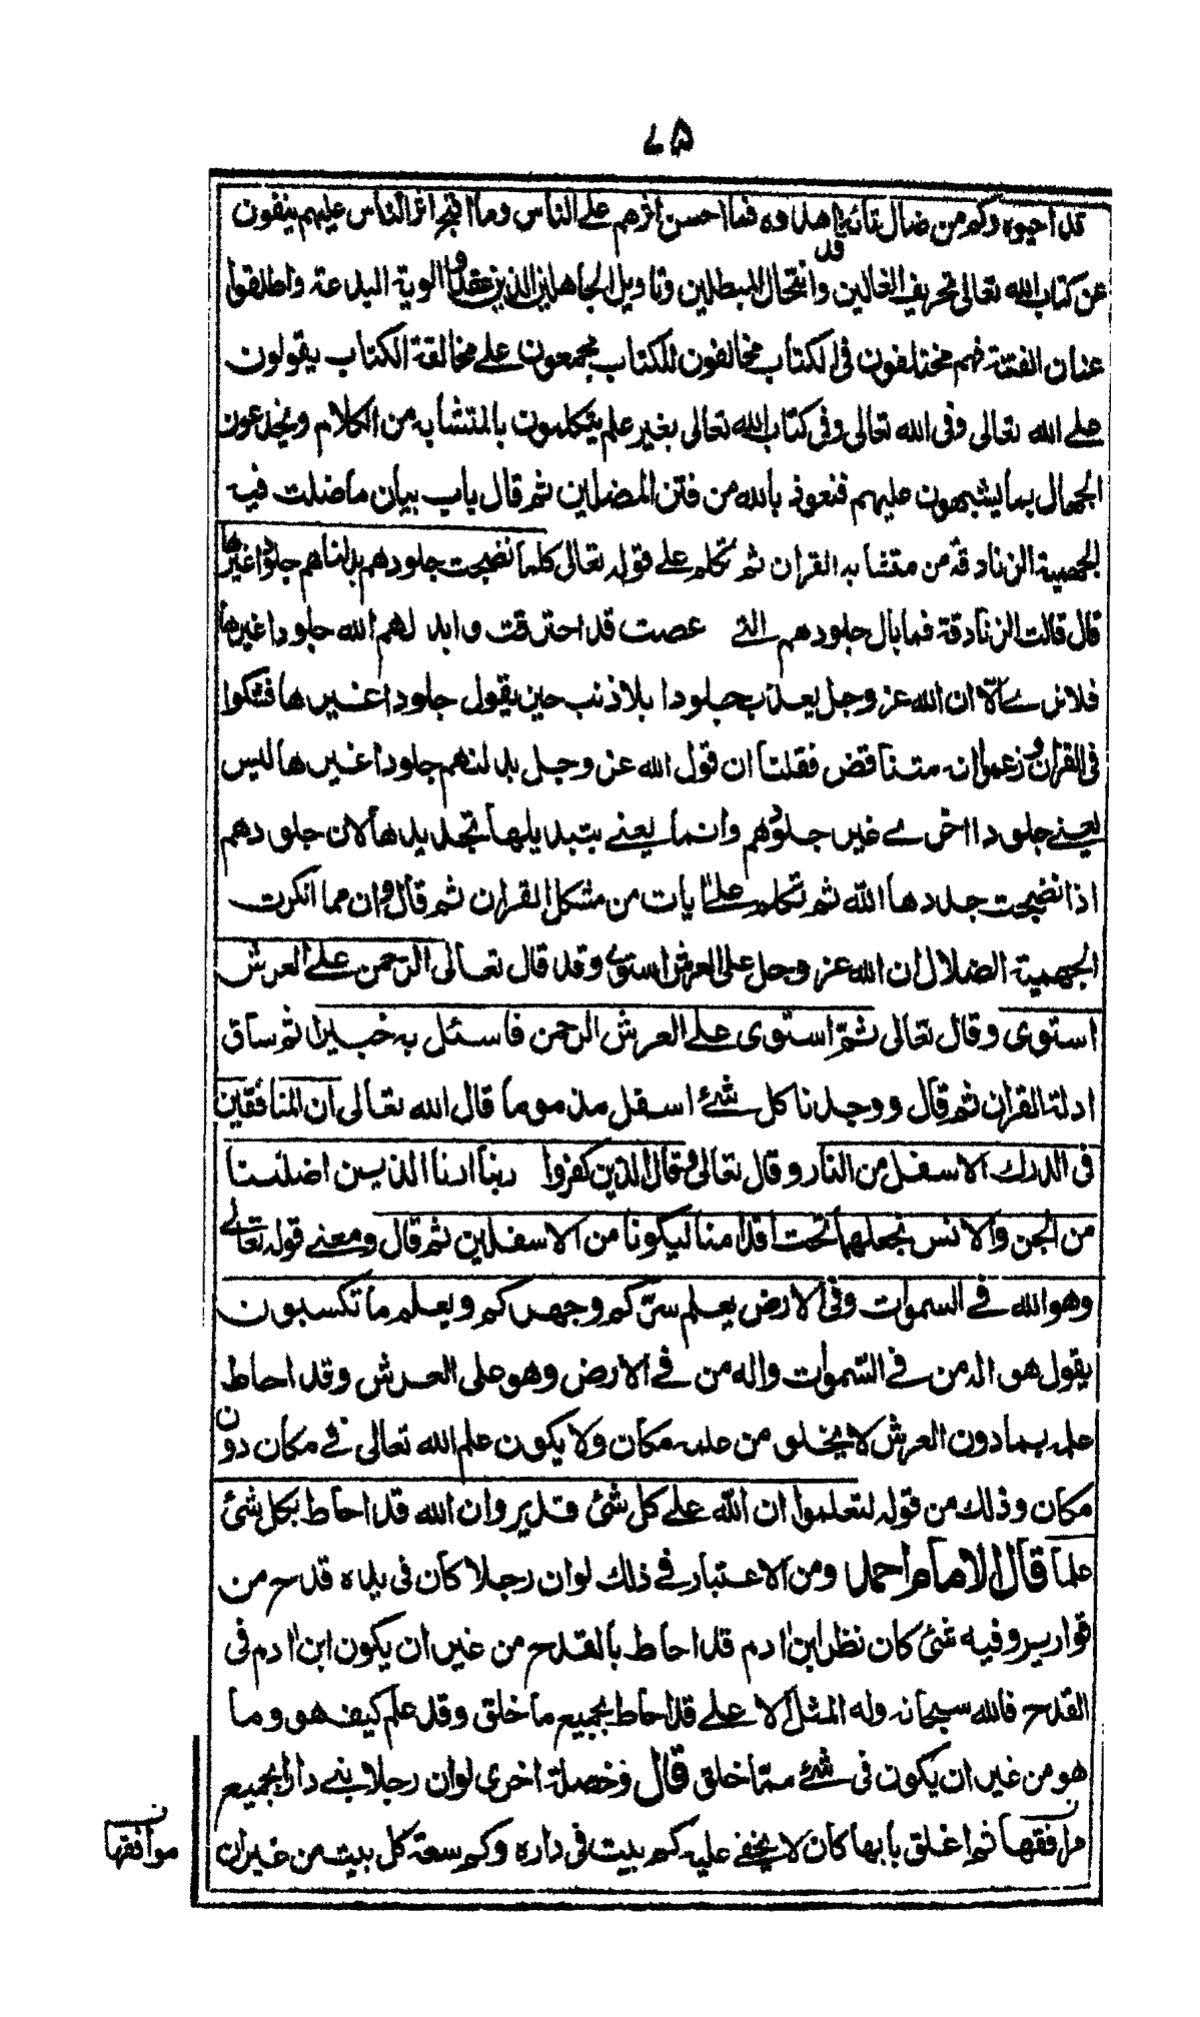 ٧٥
قد احيوه وكم من ضال تائه قد هدوه فما احسن اثرهم على الناس وما اقبح اثر الناس عليهم ينفون
عن كتاب الله تعالى تحريف الغالين وانتحال المبطلين وتاويل الجاهلين الذين عقدوا الوية البدعة واطلقوا
عنان الفتنة فهم مختلفون فى الكتاب مخالفون للكتاب مجمعون على مخالفة الكتاب يقولون
على الله تعالى وفى الله تعالى وفى كتاب الله تعالى بغير علم يتكلمون بالمتشابه من الكلام ويخدعون
الجهال بما يشبهون عليهم فنعوذ بالله من فتن المضلين ثم قال باب بيان ما ضلت فيه
الجهمية الزنادقة من متشابه القران ثم تكلم على قوله تعالى كلما نضجت جلودهم بدلناهم جلودا غيرها
قال قالت الزنادقة فما بال جلودهم التى عصت قد احترقت وابدلهم الله جلودا غيرها
فلا نرى الا ان الله عز وجل يعذب جلودا بلا ذنب حين يقول جلودا غيرها فشكوا
فى القران وزعموا انه متناقض فقلنا ان قول الله عز وجل بدلنهم جلودا غيرها ليس
يعنى جلودا اخرى غير جلودهم وانما يعنى بتبديلها تجديدها لان جلودهم
اذا نضجت جددها الله ثم تكلم على ايات من مشكل القران ثم قال وان مما انكرت
الجهمية الضلال ان الله عز وجل على العرش استوى وقد قال تعالى الرحمن على العرش
استوى وقال تعالى ثم استوى على العرش الرحمن فاسئل به خبيرا ثم ساق
ادلة القران ثم قال ووجدنا كل شئ اسفل مذموما قال الله تعالى ان المنافقين
فى الدرك الاسفل من النار وقال تعالى وقال الذين كفروا ربنا ارنا الذين اضلنا
من الجن والانس نجعلهما تحت اقدامنا ليكونا من الاسفلين ثم قال ومعنى قوله تعالى
وهو الله فى السموات وفى الارض يعلم سركم وجهركم ويعلم ما تكسبون
يقول هو اله من فى السموات واله من فى الارض وهو على العرش وقد احاط
علمه بما دون العرش لا يخلو من علمه مكان ولا يكون علم الله تعالى فى مكان دون
مكان وذلك من قوله لتعلموا ان الله على كل شئ قدير وان الله قد احاط بكل شئ
علما قال الامام احمد ومن الاعتبار فى ذلك لو ان رجلا كان فى يده قدح من
قوارير وفيه شئ كان نظر ابن ادم قد احاط بالقدح من غير ان يكون ابن ادم فى
القدح فالله سبحانه وله المثل الاعلى قد احاط بجميع ما خلق وقد علم كيف هو وما
هو من غير ان يكون فى شئ مما خلق قال وخصلة اخرى لو ان رجلا بنى دارا بجميع
مرافقها ثم اغلق بابها كان لا يخفى عليه كم بيت فى داره وكم سعة كل بيت من غير ان
موافقها ن